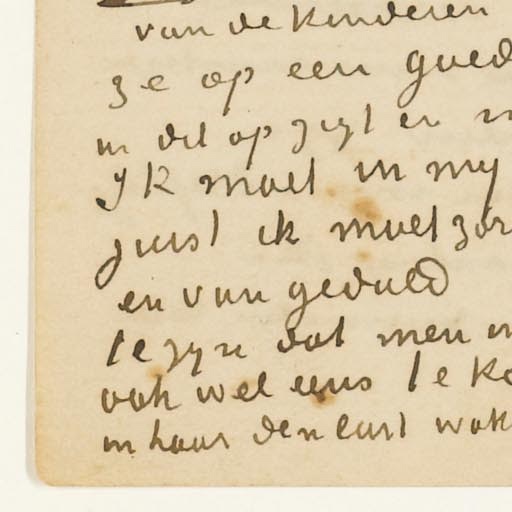 van de kinderen
ze op een goed
in dit opzigt en
Ik moet in my
juist ik moet zor
en van geduld
te zyn dat men
ook wel eens te ko
in haar den lust